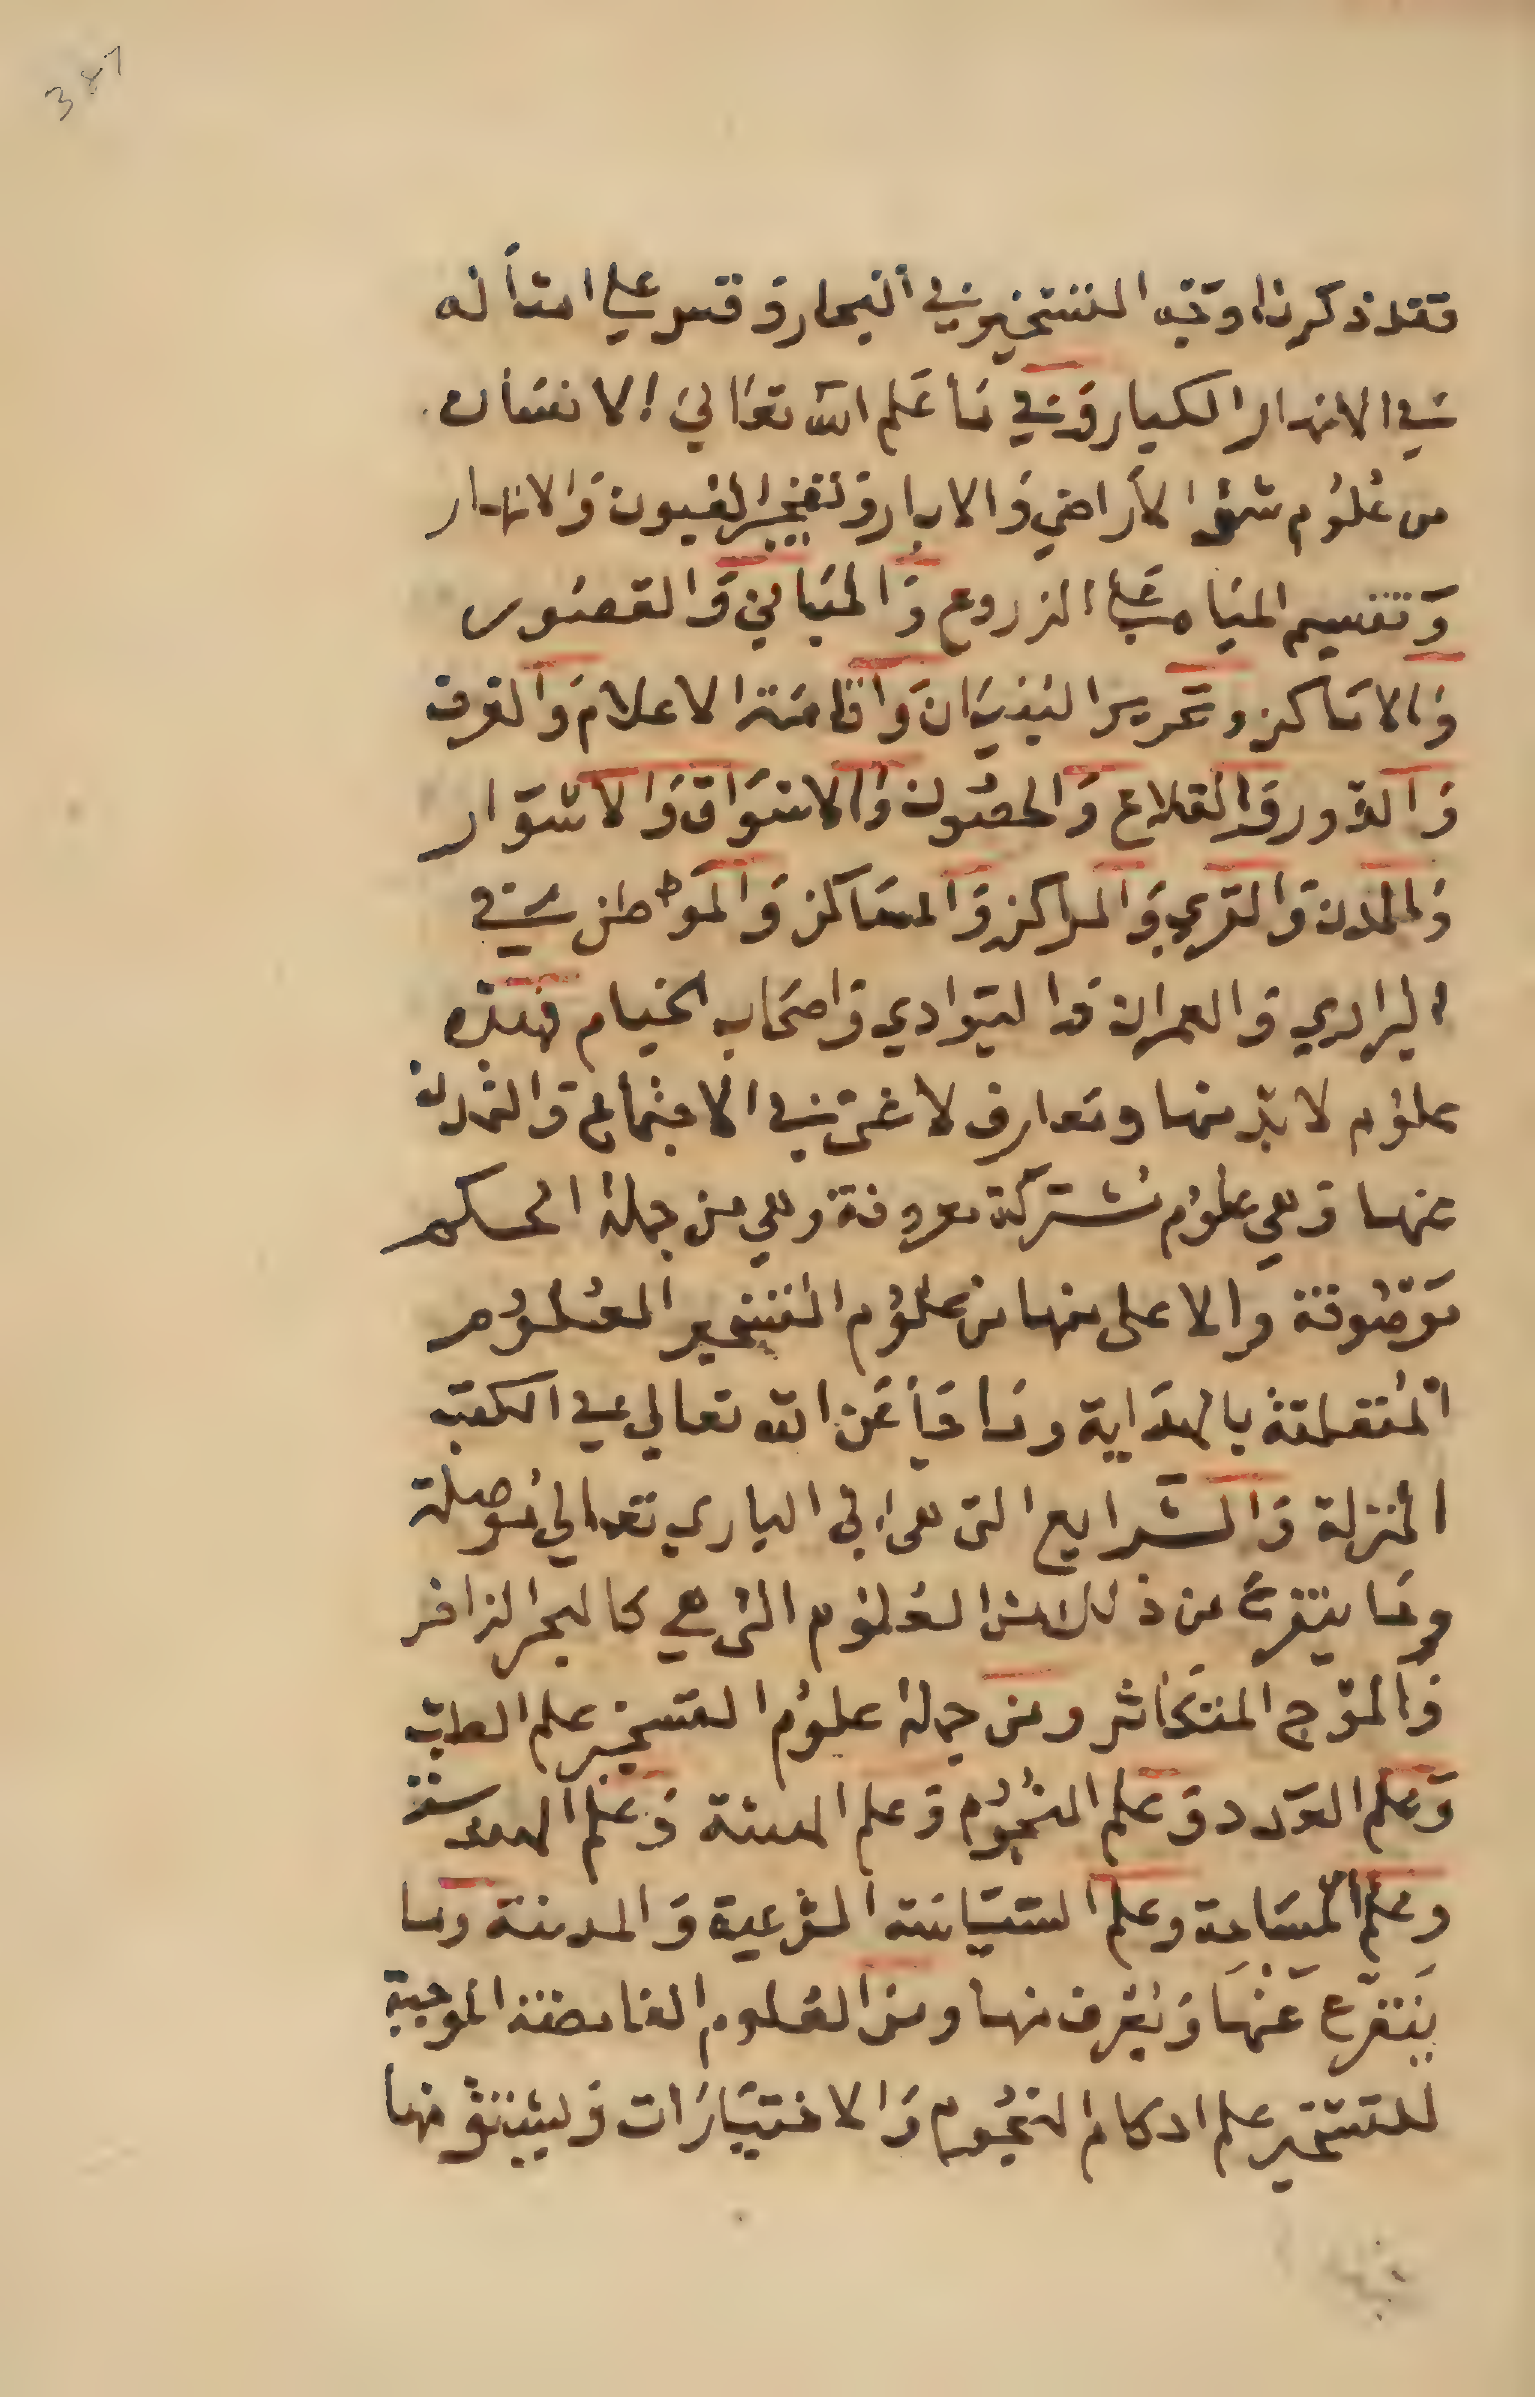 387
فقد ذكرنا وجه التسخير في البحار وقس على امثاله
في الانهار الكبار وفي ما علم الله تعالى الانسان
من علوم شق الاراضي والابار وتفجير العيون والانهار
وتقسيم المياه على الزروع والمباني والقصور
والاماكن وتحرير البنيان واقامة الاعلام والغرف
والدور والقلاع والحصون والاسواق والاسوار
والمدن والقري والمراكز والمساكن والمواطن في
البراري والعمران والبوادي واصحاب الخيام فهذه
علوم لا بد منها ومعارف لا غنى في الاجتماع والتمدن
عنها وهي علوم مشتركة معروفة وهي من جملة الحكم
موصوفة والاعلى منها من علوم التسخير العلوم
المتعلقة بالهداية وما جأ عن الله تعالي في الكتب
المنزلة والشرايع التى هى الى الباري تعالي موصلة
وما يتفرع من ذلك من العلوم التى هي كالبحر الزاخر
والموج المتكاثر ومن جملة علوم التسخير علم الطب
وعلم العدد وعلم النجوم وعلم الهيئة وعلم الهندسة
وعلم المساحة وعلم السياسة الشرعية والمدينة وما
يتفرع عنها ويعرف منها ومن العلوم الغامضة الموجبة
للتسخير علم احكام النجوم والاختيارات ويشتق منها